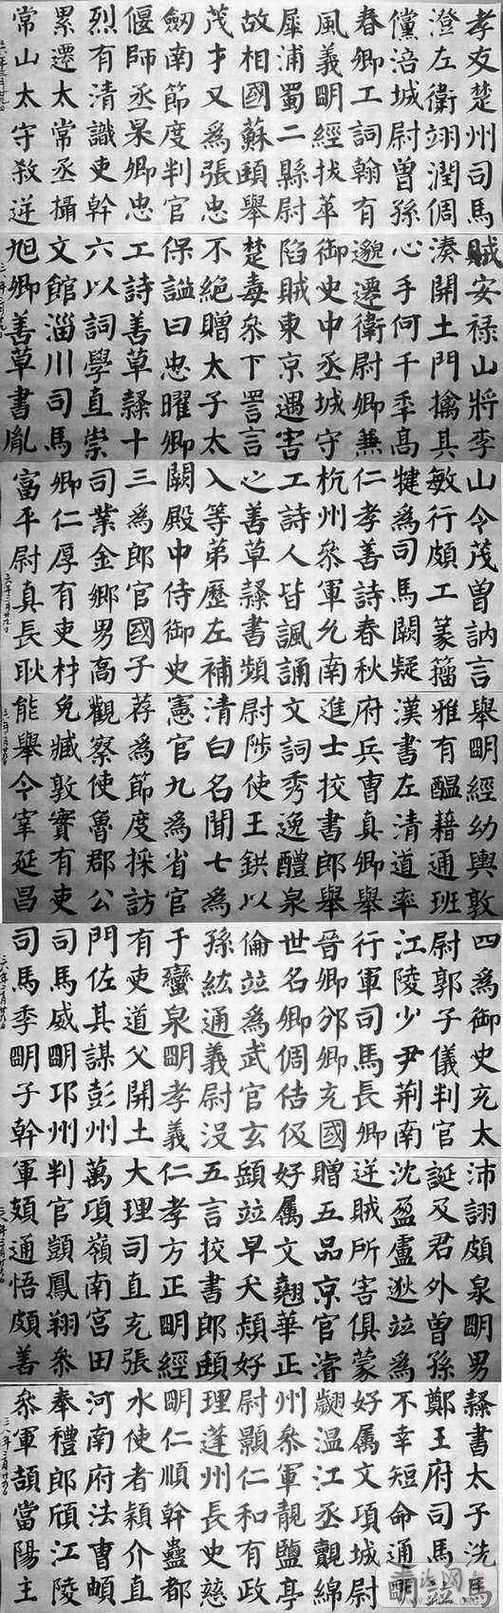 孝友楚州司馬
澄左衛翊潤倜
儻涪城尉曾孫
春卿工詞翰有
風義明經拔萃
犀浦蜀二縣尉
故相國蘇頲舉
茂才又為張忠
劒南節度判官
偃師丞杲卿忠
烈有清識吏幹
累遷太常丞攝
常山太守殺逆
賊安祿山將李
湊開土門擒其
心手何千秊高
邈遷衛尉卿兼
御史中丞城守
陷賊東京遇害
楚毒叅下詈言
不絕贈太子太
保謚曰忠曜卿
工詩善草隸十
六以詞學直崇
文館淄川司馬
旭卿善草書胤
山令茂曾訥言
敏行頗工篆籀
犍為司馬闕疑
仁孝善詩春秋
杭州叅軍允南
工詩人皆諷誦
之善草隸書頻
入等弟歷左補
闕殿中侍御史
三為郎官國子
司業金鄉男高
卿仁厚有吏材
富平尉真長耿
舉明經幼輿敦
雅有醞藉通班
漢書左清道率
府兵曹真卿舉
進士校書郎舉
文詞秀逸醴泉
尉陟使王鉷以
清白名聞七為
憲官九為省官
荐為節度採訪
觀察使魯郡公
允臧敦實有吏
能舉令宰延昌
四為御史充太
尉郭子儀判官
江陵少尹荊南
行軍司馬長卿
晉卿邠卿充國
世名卿倜佶伋
倫並為武官玄
孫紘通義尉沒
于蠻泉明孝義
有吏道父開土
門佐其謀彭州
司馬威明邛州
司馬季明子幹
沛詡頗泉明男
誕及君外曾孫
沈盈盧逖並為
逆賊所害俱蒙
贈五品京官濬
好属文翹華正
頲並早夭頍好
五言校書郎頲
仁孝方正明經
大理司直充張
萬項嶺南宫田
判官顗鳳翔叅
軍頗通悟頗善
隸書太子洗馬
鄭王府司馬並
不幸短命通明
好属文項城尉
翽溫江丞覿綿
州叅軍靚鹽亭
尉顥仁和有政
理蓬州長史慈
明仁順幹蠱都
水使者穎介直
河南府法曹頔
奉禮郎頎江陵
叅軍頡當陽主